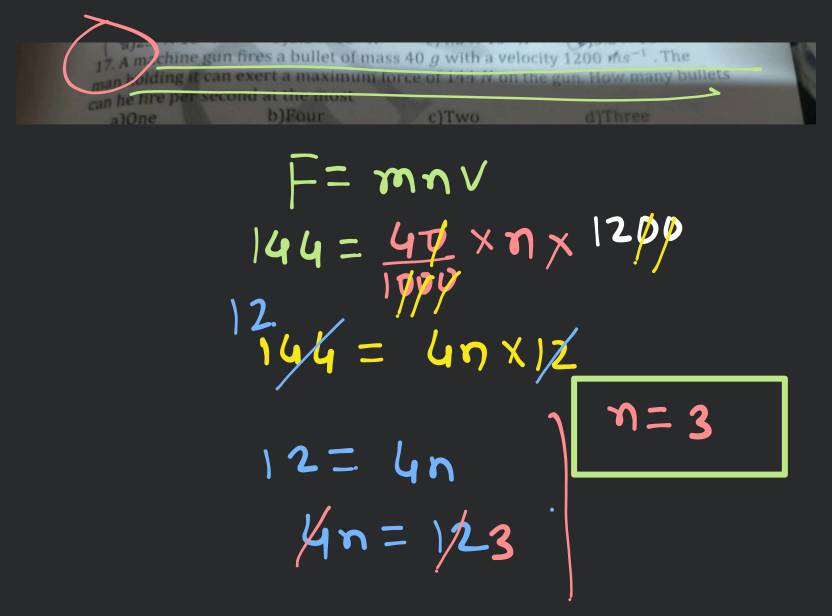 17. A machine gun fires a bullet of mass 40 g with a velocity 1200 ms⁻¹. The
man holding it can exert a maximum force of 144 N on the gun. How many bullets
can he fire per second at the most
a)One b)Four c)Two d)Three
F = mnv
144 = 40/1000 × n × 1200
12
144 = 4n × 12
12 = 4n
4n = 12 3
n = 3